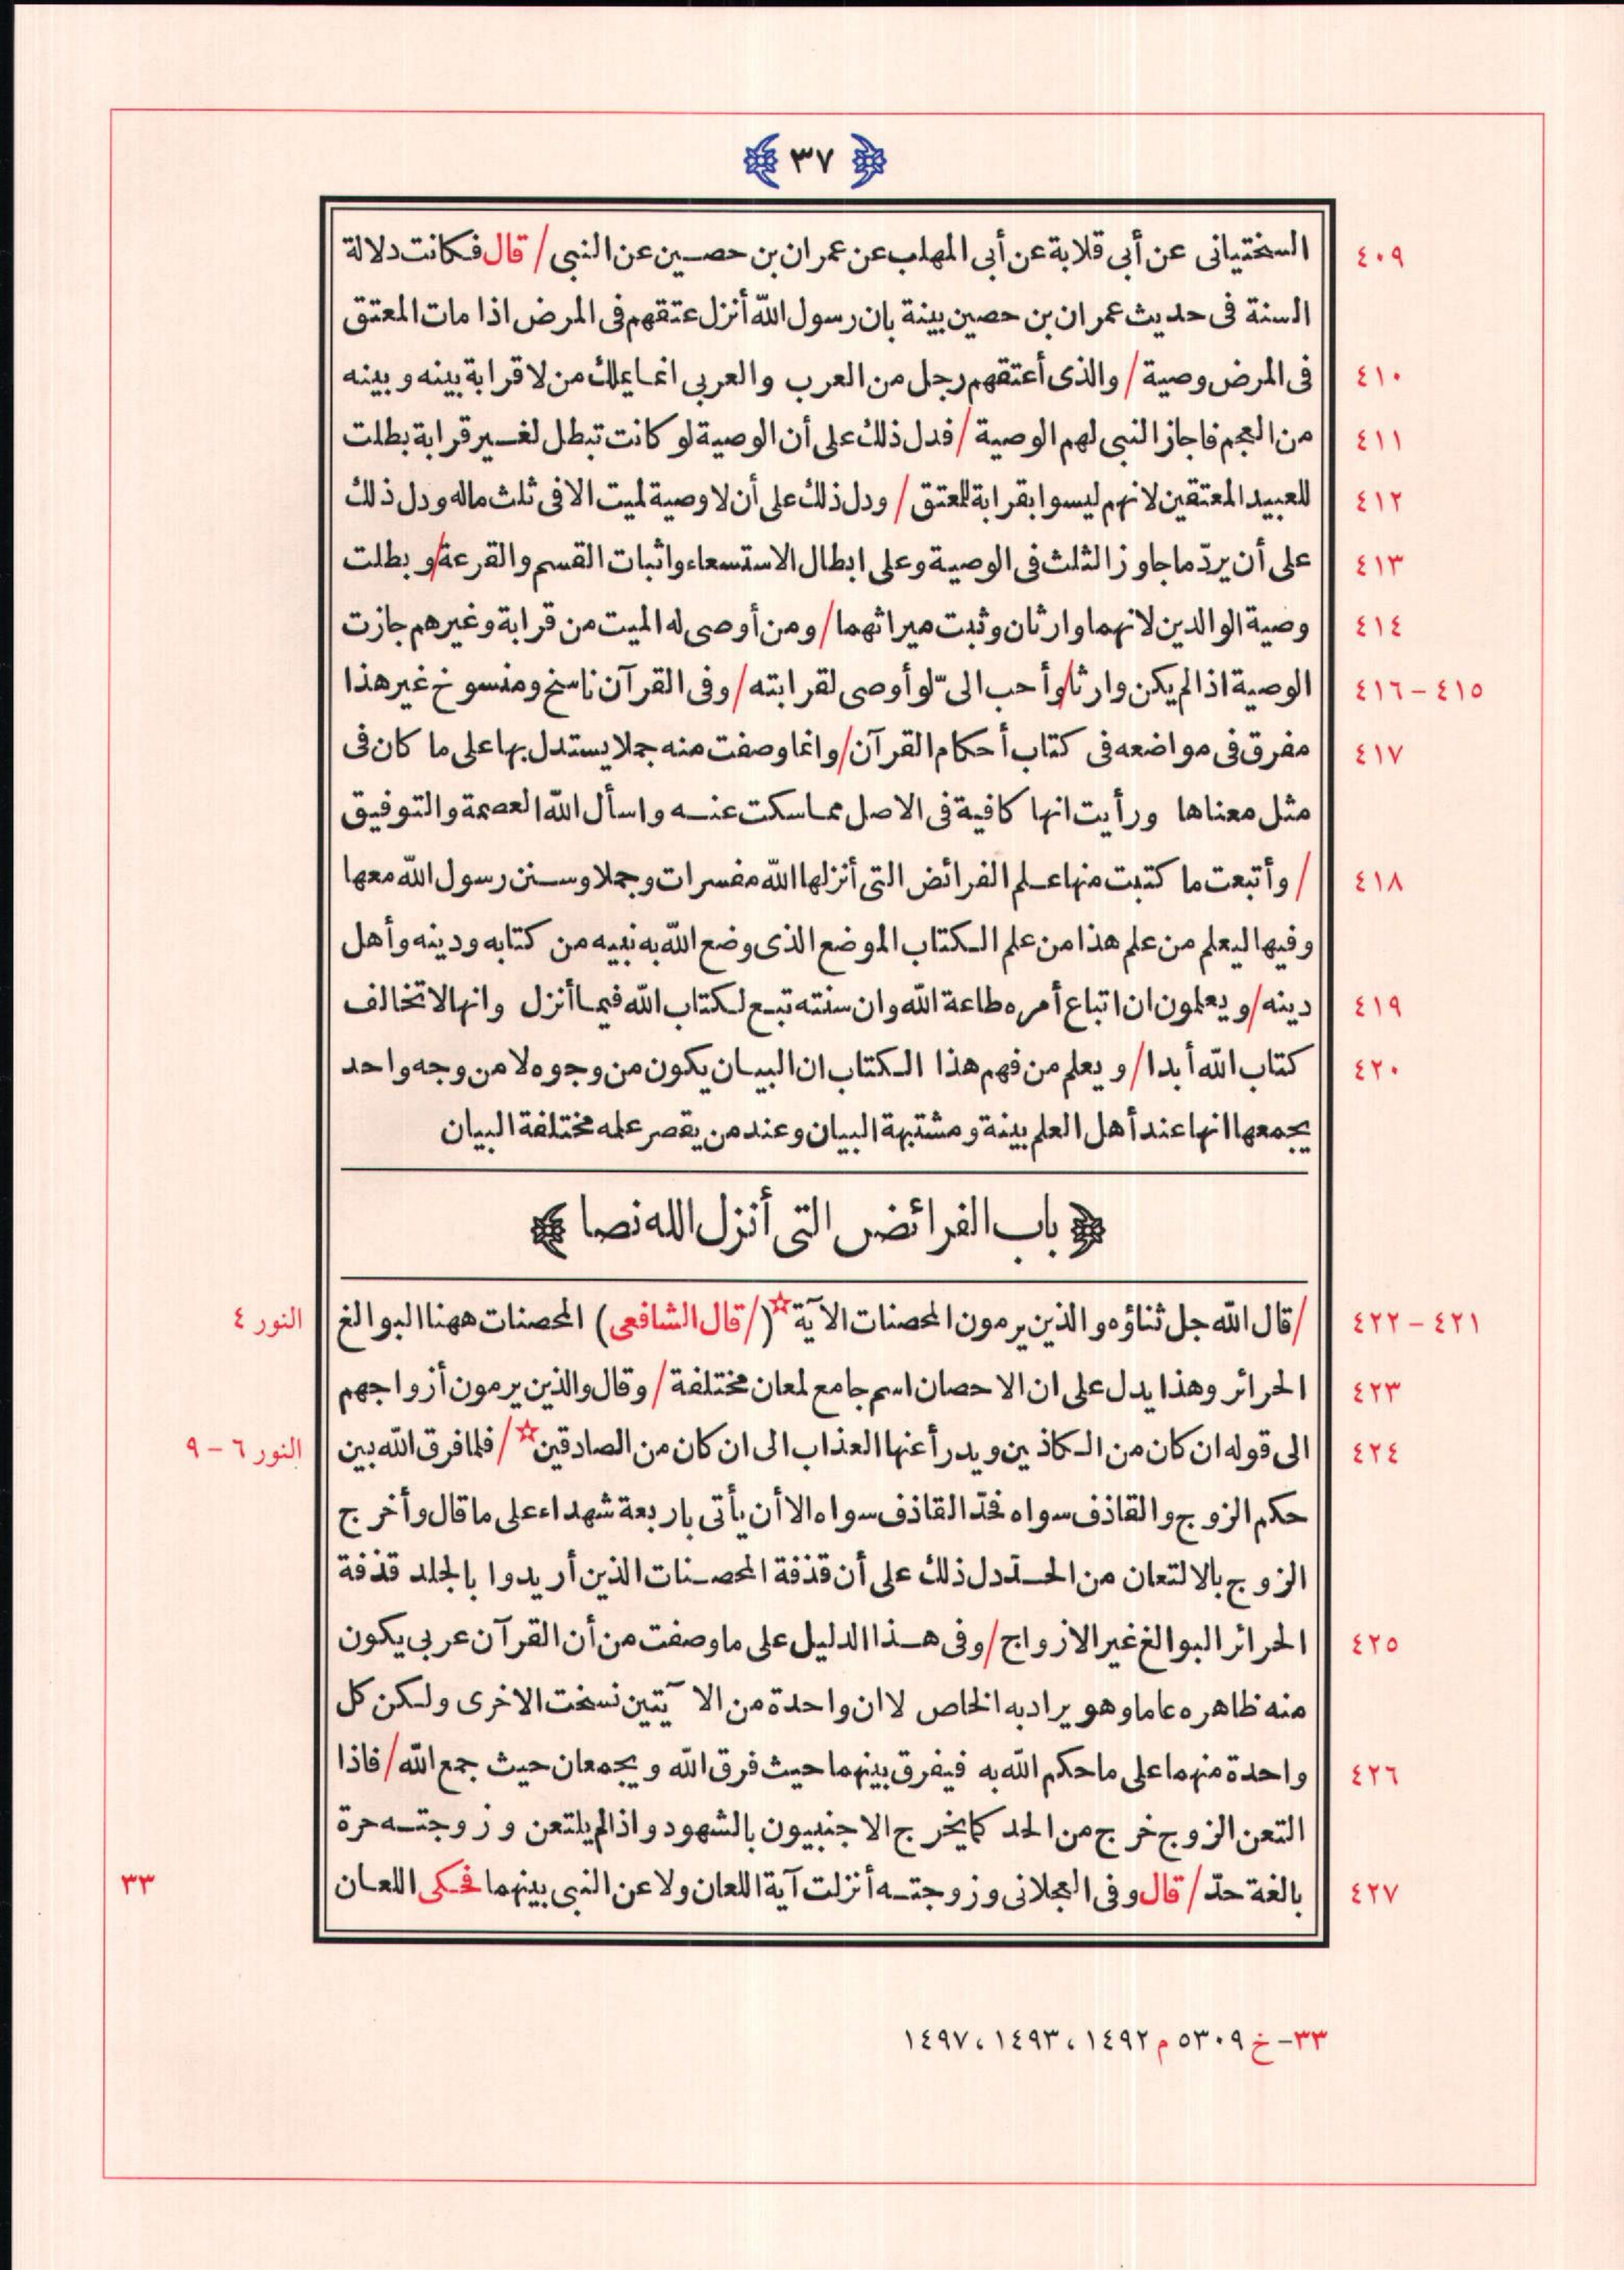 ﴿ ٣٧ ﴾
٤٠٩ السختيانى عن أبى قلابة عن أبى المهلب عن عمران بن حصين عن النبى / قال فكانت دلالة
السنة فى حديث عمران بن حصين بينة بان رسول الله أنزل عتقهم فى المرض اذا مات المعتق
٤١٠ فى المرض وصية / والذى أعتقهم رجل من العرب والعربى انما يملك من لا قرابة بينه وبينه
٤١١ من العجم فاجاز النبى لهم الوصية / فدل ذلك على أن الوصية لو كانت تبطل لغير قرابة بطلت
٤١٢ للعبيد المعتقين لانهم ليسوا بقرابة للمعتق / ودل ذلك على أن لا وصية لميت الا فى ثلث ماله ودل ذلك
٤١٣ على أن يردّ ما جاوز الثلث فى الوصية وعلى ابطال الاستسعاء واثبات القسم والقرعة / وبطلت
٤١٤ وصية الوالدين لانهما وارثان وثبت ميراثهما / ومن أوصى له الميت من قرابة وغيرهم جازت
٤١٥ – ٤١٦ الوصية اذا لم يكن وارثا / وأحب الىّ لو أوصى لقرابته / وفى القرآن ناسخ ومنسوخ غير هذا
٤١٧ مفرق فى مواضعه فى كتاب أحكام القرآن / وانما وصفت منه جملا يستدل بها على ما كان فى
مثل معناها ورأيت انها كافية فى الاصل مما سكت عنه واسأل الله العصمة والتوفيق
٤١٨ / وأتبعت ما كتبت منها علم الفرائض التى أنزلها الله مفسرات وجملا وسنن رسول الله معها
وفيها ليعلم من علم هذا من علم الكتاب الموضع الذى وضع الله به نبيه من كتابه ودينه وأهل
٤١٩ دينه / ويعلمون ان اتباع أمره طاعة الله وان سنته تبع لكتاب الله فيما أنزل وانها لا تخالف
٤٢٠ كتاب الله أبدا / ويعلم من فهم هذا الكتاب ان البيان يكون من وجوه لا من وجه واحد
يجمعها انها عند أهل العلم بينة ومشتبهة البيان وعند من يقصر علمه مختلفة البيان
﴿ باب الفرائض التى أنزل الله نصا ﴾
٤٢١ – ٤٢٢ / قال الله جل ثناؤه والذين يرمون المحصنات الآية☆ (/ قال الشافعى) المحصنات ههنا البوالغ النور ٤
٤٢٣ الحرائر وهذا يدل على ان الاحصان اسم جامع لمعان مختلفة / وقال والذين يرمون أزواجهم
٤٢٤ الى قوله ان كان من الكاذبين ويدرأ عنها العذاب الى ان كان من الصادقين☆ / فلما فرق الله بين النور ٦ – ٩
حكم الزوج والقاذف سواه فحدّ القاذف سواه الا أن يأتى باربعة شهداء على ما قال وأخرج
الزوج بالالتعان من الحدّ دل ذلك على أن قذفة المحصنات الذين أريدوا بالجلد قذفة
٤٢٥ الحرائر البوالغ غير الازواج / وفى هذا الدليل على ما وصفت من أن القرآن عربى يكون
منه ظاهره عاما وهو يراد به الخاص لا ان واحدة من الآيتين نسخت الاخرى ولكن كل
٤٢٦ واحدة منهما على ما حكم الله به فيفرق بينهما حيث فرق الله ويجمعان حيث جمع الله / فاذا
التعن الزوج خرج من الحد كما يخرج الاجنبيون بالشهود واذا لم يلتعن وزوجته حرة
٤٢٧ بالغة حدّ / قال وفى العجلانى وزوجته أنزلت آية اللعان ولاعن النبى بينهما فحكى اللعان ٣٣
٣٣– خ ٥٣٠٩ م ١٤٩٢، ١٤٩٣، ١٤٩٧